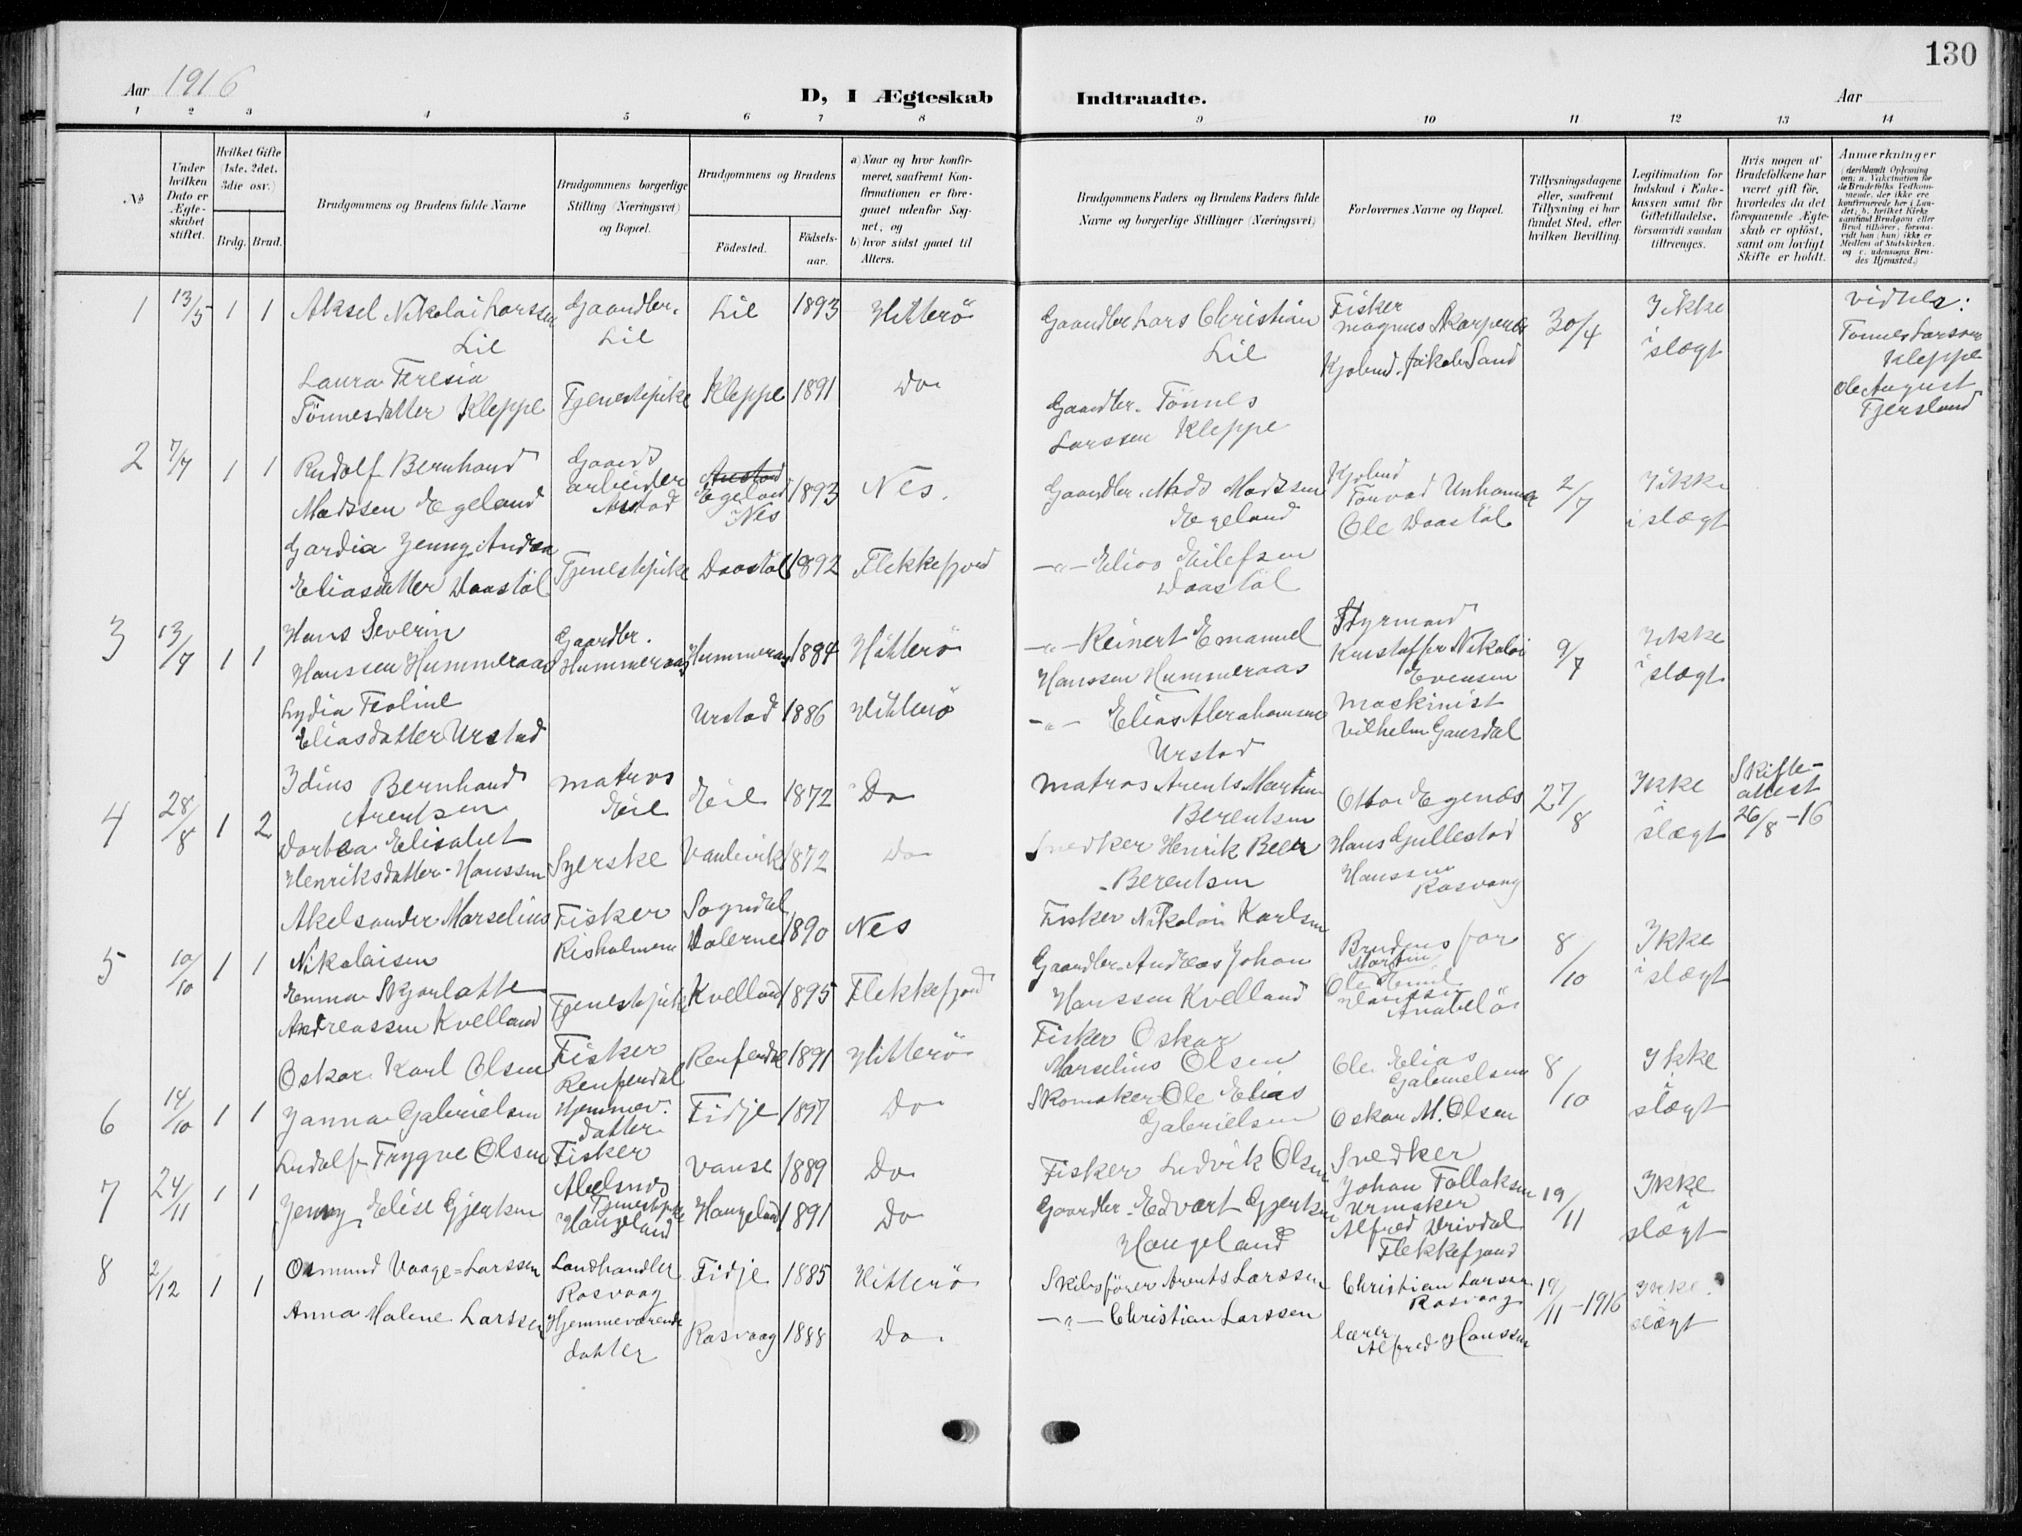 130
Aar 1916
D, I Ægteskab Indtraadte.
Aar
1 2 3 4 5 6 7 8 9 10 11 12 13 14
№
Under hvilken Dato er Ægteskabet stiftet.
Hvilket Gifte (1ste, 2det, 3die osv.)
Brdg. Brud.
Brudgommens og Brudens fulde Navne
Brudgommens borgerlige Stilling (Næringsvei) og Bopæl.
Brudgommens og Brudens
Fødested.
Fødselsaar.
a) Naar og hvor konfirmeret, saafremt Konfirmationen er foregaaet udenfor Sognet, og
b) hvor sidst gaaet til Alters.
Brudgommens Faders og Brudens Faders fulde Navne og borgerlige Stillinger (Næringsvei)
Forlovernes Navne og Bopæl.
Tillysningsdagene eller, saafremt Tillysning ei har fundet Sted, efter hvilken Bevilling.
Legitimation for Indskud i Enkekassen samt for Giftetilladelse, forsaavidt saadan tiltrænges.
Hvis nogen af Brudefolkene har været gift før, hvorledes da det foregaaende Ægteskab er opløst, samt om lovligt Skifte er holdt.
Anmærkninger (deriblandt Oplysning om: a. Vakcination for de Brudefolks Vedkommende, der ikke ere konfirmerede her i Landet; b. hvilket Kirkesamfund Brudgom eller Brud tilhører, forsaavidt han (hun) ikke er Medlem af Statskirken, og c. udensogns Brudes Hjemsted.)
1 13/5 1 1 Aksel Nikolai Larssen Gaardbr. Lil 1893 Hitterö Gaardbr Lars Christian Fisker 30/4 Ikke Vidner:
Lil Lil Lil Magnus i slægt Tønnes Larssen
Kjøbmd. Jakob Sand Kleppe
Laura Teresia Tjenestepike Kleppe 1891 Do Gaardbr. Tönnes Ole August
Tönnesdatter Kleppe Larssen Kleppe Fjersland
2 7/7 1 1 Rudolf Bernhard Gaards Egeland 1893 Nes. Gaardbr. Mads Madssen Kjøbmd 2/7 Ikke
Madssen Egeland arbeider i Nes Egeland Ole Daastöl i slægt
Gardia Jenny Andrea Tjenestepike Daastöl 1892 Flekkefjord —"— Elias Eilefsen
Eliasdatter Daastöl Daastöl
3 13/7 1 1 Hans Severin Gaardbr. Hummeraas 1884 Hitterö —"— Reinert Emanuel Styrmand 9/7 Ikke
Hanssen Hummeraas Hummeraas Hanssen Hummeraas Nikolai i slægt
Evensen
Lydia Teoline Urstad 1886 Hitterö —"— Elias Abrahamsen Maskinist
Eliasdatter Urstad Urstad Vilhelm Gausdal
4 28/8 1 2 Idius Bernhard Matros Eie 1872 Do Matros Arents Martin Otto Egenes 27/8 Ikke Skifte-
Arentsen Berentsen i slægt attest
Dortea Elisabet Syerske 1872 Do Snedker Henrik Beer Hans Gullestad 26/8-16
Henriksdatter Hanssen Berentsen Hanssen Rasvaag
5 10/10 1 1 Akelsander Marselius Fisker Sogndal 1890 Nes Fisker Nikolai Karlsen Brudens far 8/10 Ikke
Nikolaisen Risholmen Dalerne i slægt
Emma Skjarlotte Tjenestepike Kvelland 1895 Flekkefjord Gaardbr. Andreas Johan Ole Martin Emil
Andreassen Kvelland Hanssen Kvelland Hanssen Anabelö
6 14/10 1 1 Oskar Karl Olsen Fisker 1891 Hitterö Fisker Oskar Ole Elias 8/10 Ikke
Marselius Olsen Gabrielsen i slægt
Janna Gabrielsen Hjemmev. Fidje 1897 Do Skomaker Ole Elias Oskar M. Olsen
datter Gabrielsen
7 24/11 1 1 Ludolf Trygve Olsen Fisker Vanse 1889 Do Fisker Ludvik Olsen Snedker 19/11 Ikke
Abelsnes Johan Tollaksen i slægt
Jenny Elise Gjertsen Tjenestpike Haugeland 1891 Do Gaardbr. Edvart Gjertsen Urmaker
Haugeland Haugeland Alfred Drivdal
Flekkefjord
8 2/12 1 1 Osmund Vaage=Larssen Landhandler Fidje 1885 Hitterö Skibsförer Arents Larssen Christian Larssen 19/11-1916 Ikke
Rasvaag Rasvaag i slægt
Anna Malene Larssen Hjemmeværende Rasvaag 1888 Do. —"— Christian Larssen lærer
datter Alfred Hanssen